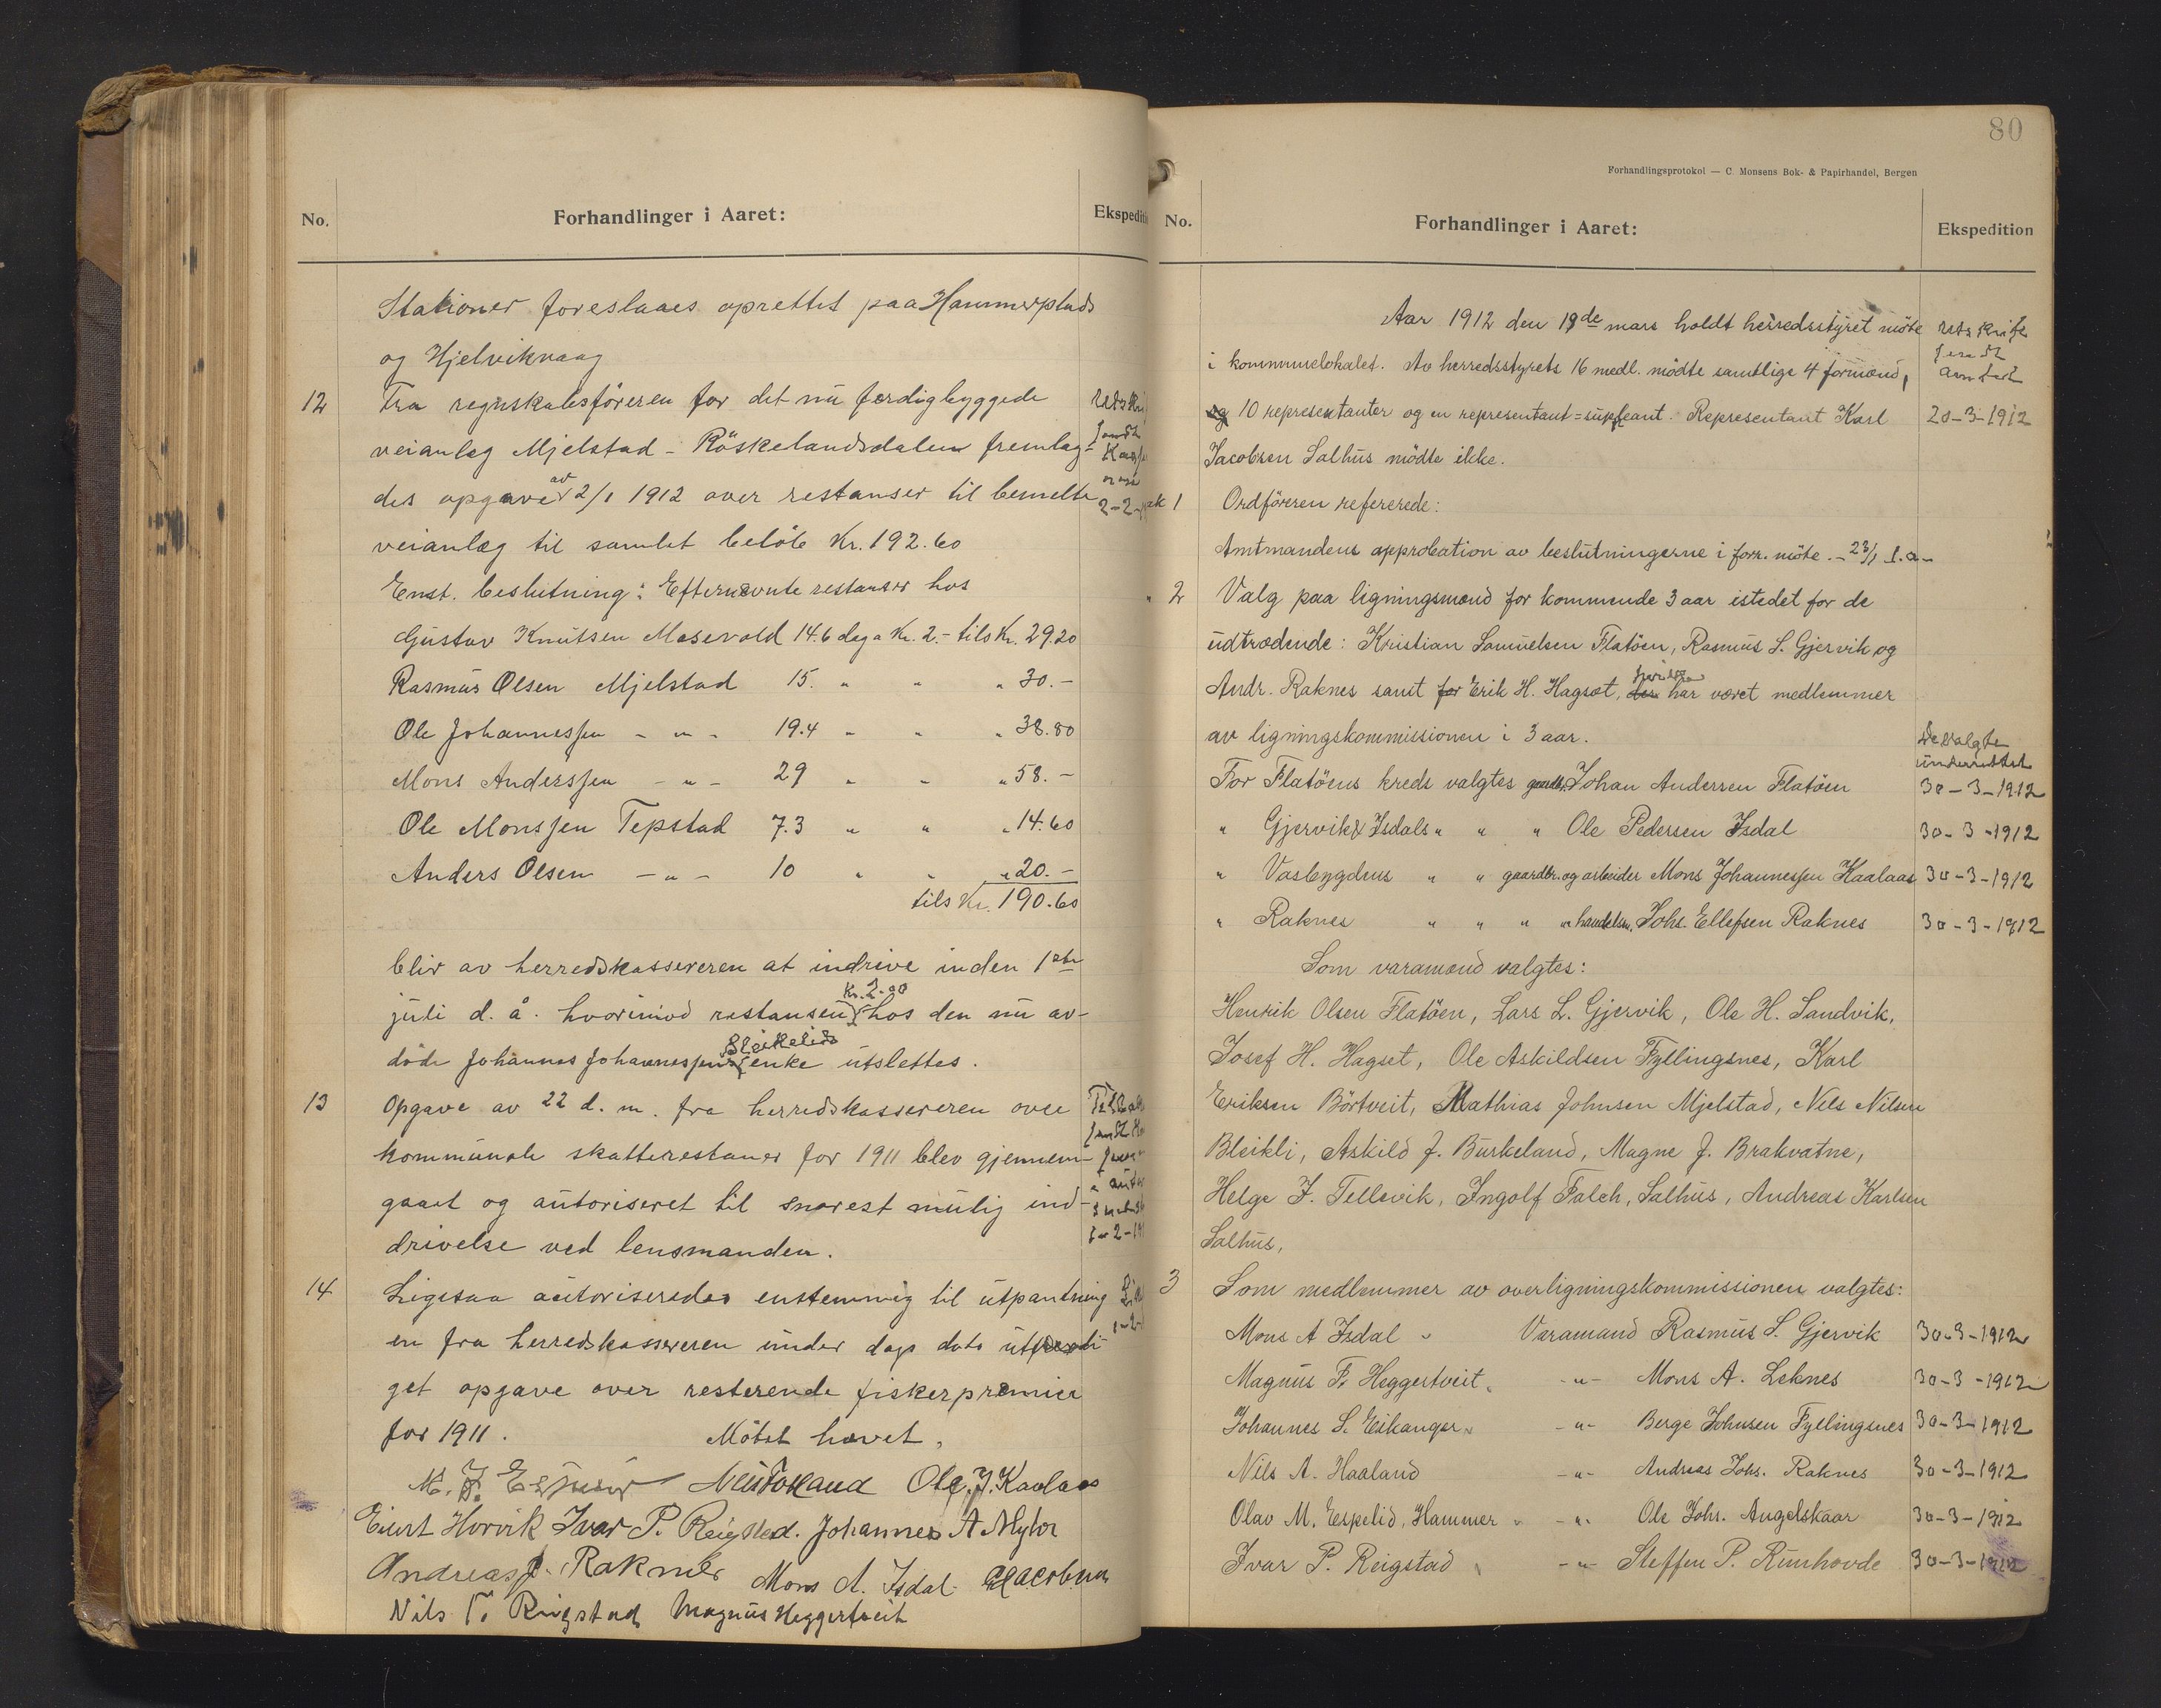 No.
Forhandlinger i Aaret:
Stationer foreslaaes oprettet paa Hammersplads
og Hjelvikvaag
12 Fra regnskabsföreren for det nu færdigbyggede
veianlæg Mjelstad - Röskelandsdalen fremlag-
des opgave av 2/1 1912 over restanser til bemeldte
veianlæg til samlet belöb Kr. 192.60
Enst. beslutning: Efternævnte restanser hos
Gustav Knutsen Masevold 14.6 dag a Kr. 2.- tils Kr. 29.20
Rasmus Olsen Mjelstad 15. " " " 30.-
Ole Johannessen - " - 19.4 " " " 38.80
Mons Anderssen - " - 29 " " " 58.-
Ole Monssen Tepstad 7.3 " " " 14.60
Anders Olsen - " - 10 " " " 20.-
tils Kr. 190.60
blir av herredskassereren at indrive inden 1ste
juli d. å. hvorimod restansen Kr. 2.00 hos den nu av-
döde Johannes Johannessens Bleikelids enke utslettes.
13 Opgave av 22 d. m. fra herredskassereren over
kommunale skatterestanser for 1911 blev gjennem-
gaaet og autoriseret til snarest mulig ind-
drivelse ved lensmanden.
14 Ligesaa autoriseredes enstemmig til utpantning
en fra herredskassereren under dags dato utfærdi-
get opgave over resterende fiskerpræmier
for 1911. Mötet hævet.
Ole J. Kaalaas
Eivert Horvik Ivar P. Reigstad. Johannes A Mylor
Andreas J. Raknes Mons A. Isdal Jacobsen
Nils T. Ringstad Magnus Heggertveit
80
Forhandlingsprotokol — C. Monsens Bok- & Papirhandel, Bergen
No.
Forhandlinger i Aaret:
Ekspedition
Aar 1912 den 19de mars holdt herredsstyret möte
i kommunelokalet. Av herredsstyrets 16 medl. mödte samtlige 4 formænd,
og 10 representanter og en representant=supleant. Representant Karl
20-3-1912
Jacobsen Salhus mödte ikke.
1 Ordföreren refererede:
Amtmandens approbation av beslutningerne i forr. möte. - 23/1 l. a.
2 Valg paa ligningsmænd for kommende 3 aar istedet for de
udtrædende: Kristian Samuelsen Flatöen, Rasmus S. Gjervik og
Andr. Raknes samt for Erik H. Hagset, der har været medlemmer
av ligningskommissionen i 3 aar.
De valgte
underrettet
For Flatöens kreds valgtes gaardb. Johan Andersen Flatöen 30-3-1912
" Gjervik & Isdals " " " Ole Pedersen Isdal 30-3-1912
" Vasbygdens " " gaardbr. og arbeider Mons Johannessen Kaalaas 30-3-1912
" Raknes " " " " handelsm. Johs. Ellefsen Raknes 30-3-1912
Som varamænd valgtes:
Henrik Olsen Flatöen, Lars L. Gjervik, Ole H. Sandvik,
Josef H. Hagset, Ole Askildsen Fyllingsnes, Karl
Eriksen Börtveit, Mathias Johnsen Mjelstad, Nils Nilsen
Bleikli, Askild J. Burkeland, Magne J. Brakvatne,
Helge J. Tellevik, Ingolf Falch, Salhus, Andreas Karlsen
Salhus,
3 Som medlemmer av overligningskommissionen valgtes:
Mons A Isdal " Varamand Rasmus S. Gjervik 30-3-1912
Magnus Fr Heggertveit " -"- Mons A. Leknes 30-3-1912
Johannes S. Eikanger " -"- Berge Johnsen Fyllingsnes 30-3-1912
Nils A. Haaland -"- Andreas Johs. Raknes 30-3-1912
Olav M. Espelid, Hammer " -"- Ole Johs. Angelskaar 30-3-1912
Ivar P. Reigstad " -"- Steffen P. Runhovde 30-3-1912